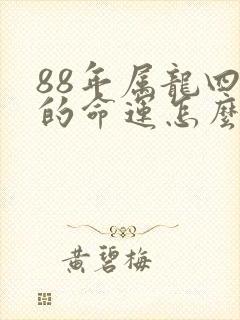 88年属龍四
的命運怎麼
黄碧梅